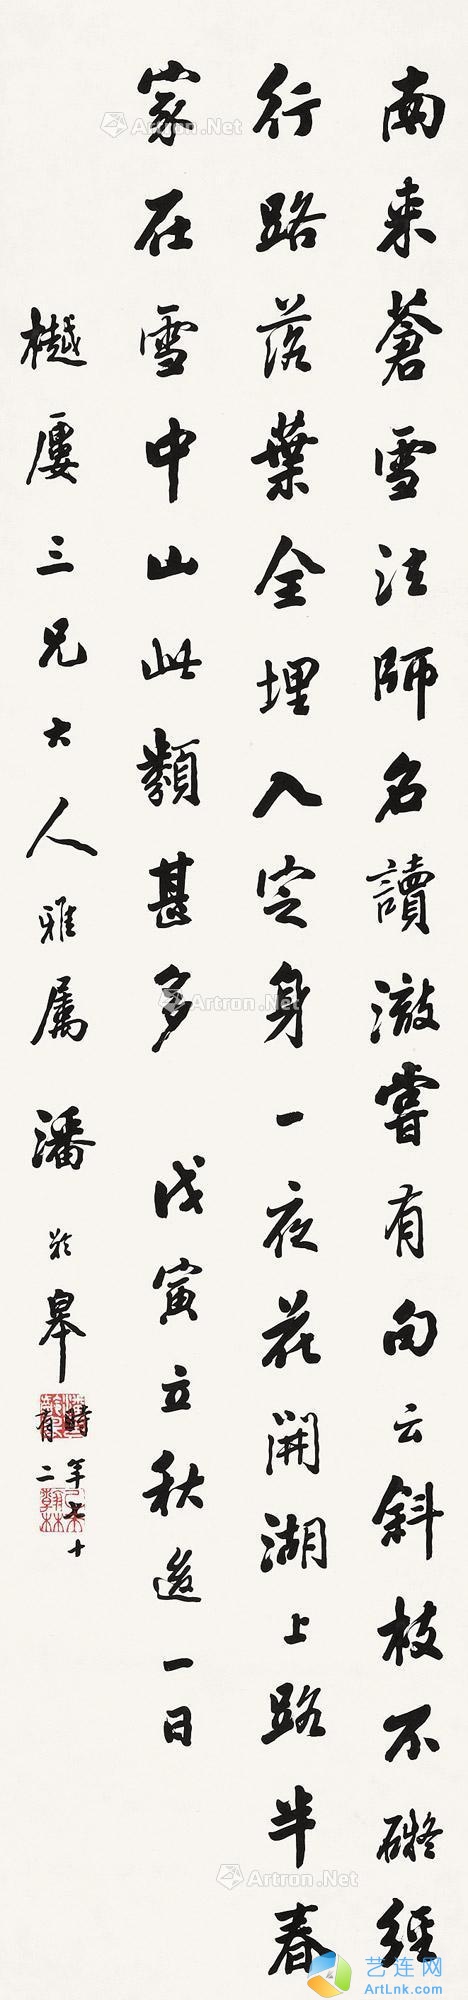 南来蒼雪法師名讀澈嘗有句云斜枝不礙經
行路落葉全埋入定身一夜花開湖上路半春
家在雪中山此類甚多 戊寅立秋後一日
樾廔三兄大人雅属 潘齡皋 時年七十有二
Artron.Net
Artron.Net
Artron.Net
艺连网
ArtLnk.com